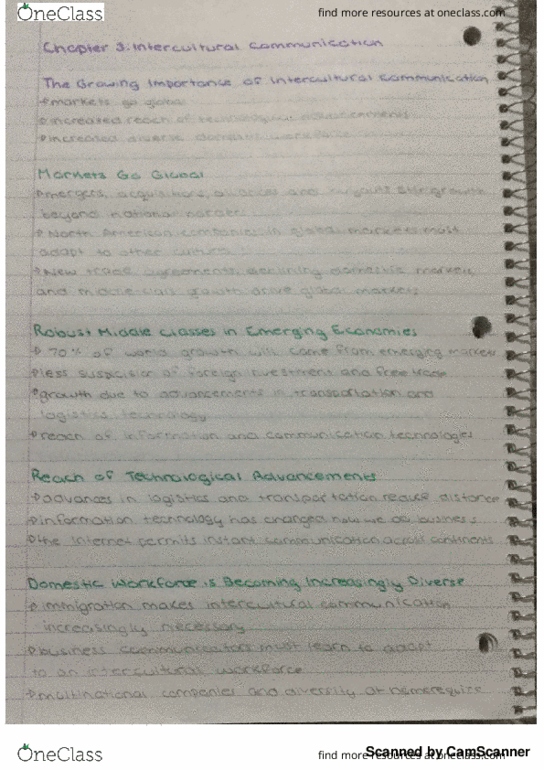 OneClass
find more resources at oneclass.com
Chapter 3: Intercultural Communication
The Growing Importance of Intercultural Communication
markets go global
increased reach of technological advancements
increased diverse domestic workforce
Markets Go Global
mergers, acquisitions, alliances and buyouts growth
beyond national borders
North American companies in global markets must
adapt to other cultures
New trade agreements, declining domestic markets,
and middle-class growth drive global markets
Robust Middle Classes in Emerging Economies
70% of world growth will come from emerging markets
less suspicion of foreign investment and free trade
growth due to advancements in transportation and
logistics technology
reach of information and communication technologies
Reach of Technological Advancements
advances in logistics and transportation reduce distance
information technology has changed how we do business
the internet permits instant communication across continents
Domestic Workforce is Becoming Increasingly Diverse
immigration makes intercultural communication
increasingly necessary
business communicators must learn to adapt
to an intercultural workforce
multinational companies and diversity at home require
OneClass
find more resources at oneclass.com
Scanned by CamScanner